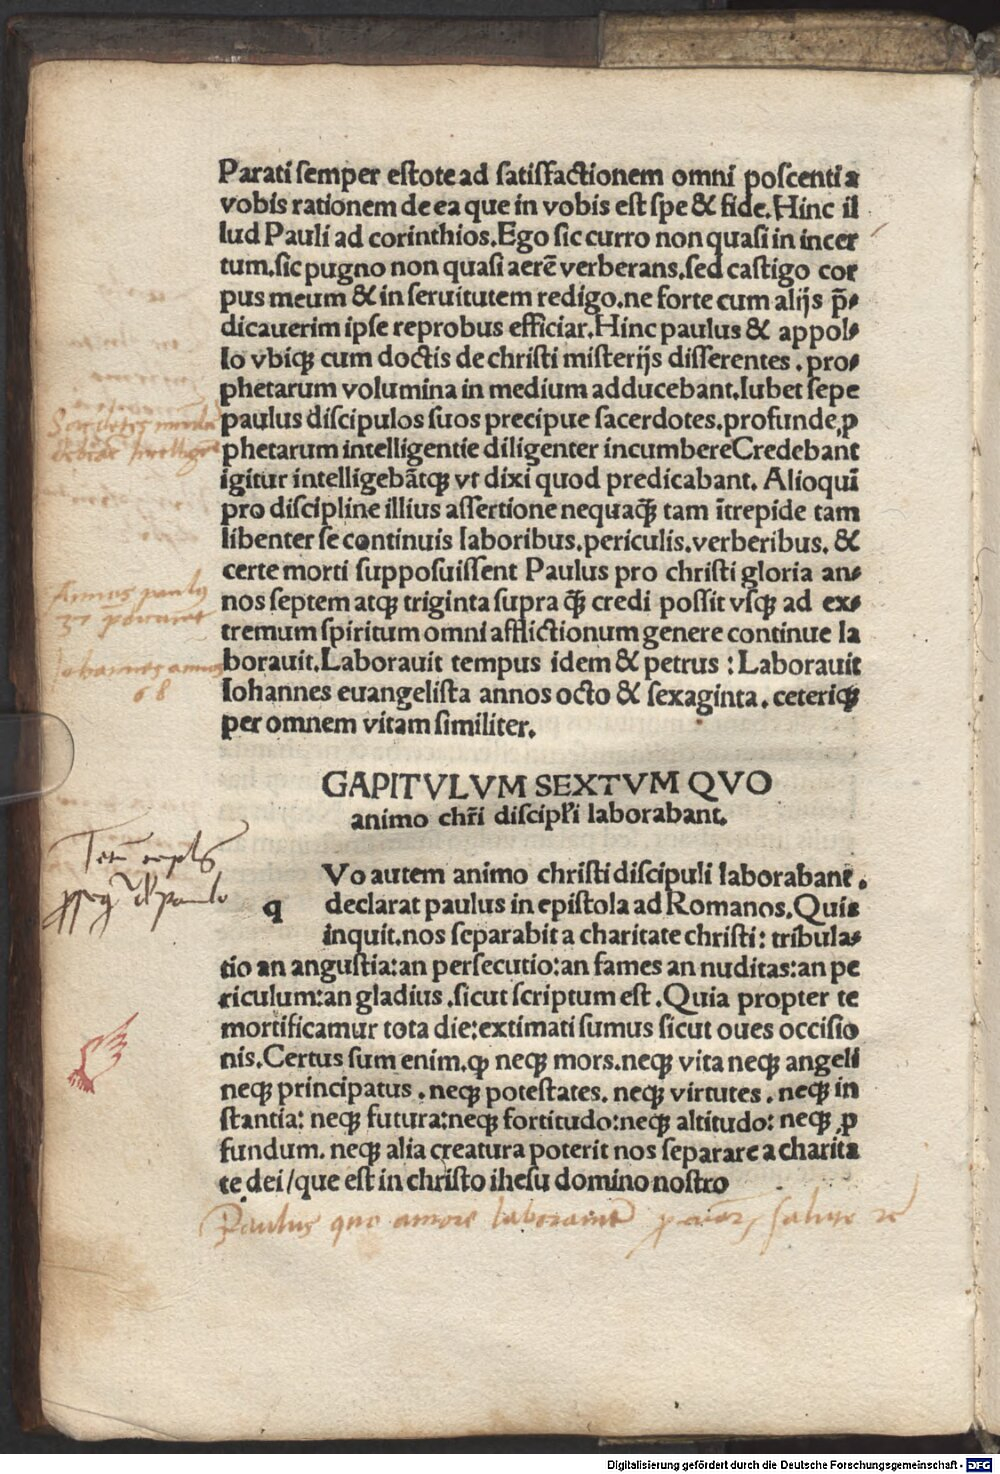 Parati semper estote ad satisfactionem omni poscenti a
vobis rationem de ea que in vobis est spe & fide. Hinc il
lud Pauli ad corinthios. Ego sic curro non quasi in incer
tum. sic pugno non quasi aerē verberans. sed castigo cor
pus meum & in seruitutem redigo. ne forte cum alijs p̄-
dicauerim ipse reprobus efficiar. Hinc paulus & appol-
lo vbiqꝫ cum doctis de christi misterijs disserentes . pro-
phetarum volumina in medium adducebant. Iubet sepe
paulus discipulos suos precipue sacerdotes. profunde ꝓ
phetarum intelligentie diligenter incumbere Credebant
igitur intelligebātqꝫ vt dixi quod predicabant. Alioquī
pro discipline illius assertione nequaꝗ̄ tam ītrepide tam
libenter se continuis laboribus. periculis. verberibus. &
certe morti supposuissent Paulus pro christi gloria an-
nos septem atqꝫ triginta supra ꝗ̄ credi possit vsqꝫ ad ex-
tremum spiritum omni afflictionum genere continue la
borauit. Laborauit tempus idem & petrus : Laborauit
Iohannes euangelista annos octo & sexaginta . ceteriqꝫ
per omnem vitam similiter.
Annos paulus
37
Iohannes annos
68
GAPITVLVM SEXTVM QVO
animo chr̄i discipl̄i laborabant.
Vo autem animo christi discipuli laborabant .
q declarat paulus in epistola ad Romanos. Quis
inquit. nos separabit a charitate christi: tribula-
tio an angustia: an persecutio: an fames an nuditas: an pe
riculum: an gladius . sicut scriptum est . Quia propter te
mortificamur tota die: extimati sumus sicut oues occisio
nis. Certus sum enim. ꝙ neqꝫ mors. neqꝫ vita neqꝫ angeli
neqꝫ principatus . neqꝫ potestates. neqꝫ virtutes . neqꝫ in
stantia: neqꝫ futura: neqꝫ fortitudo: neqꝫ altitudo: neqꝫ ꝓ
fundum. neqꝫ alia creatura poterit nos separare a charita
te dei / que est in christo ihesu domino nostro
Paulus quo amore laborauit
Digitalisierung gefördert durch die Deutsche Forschungsgemeinschaft - DFG